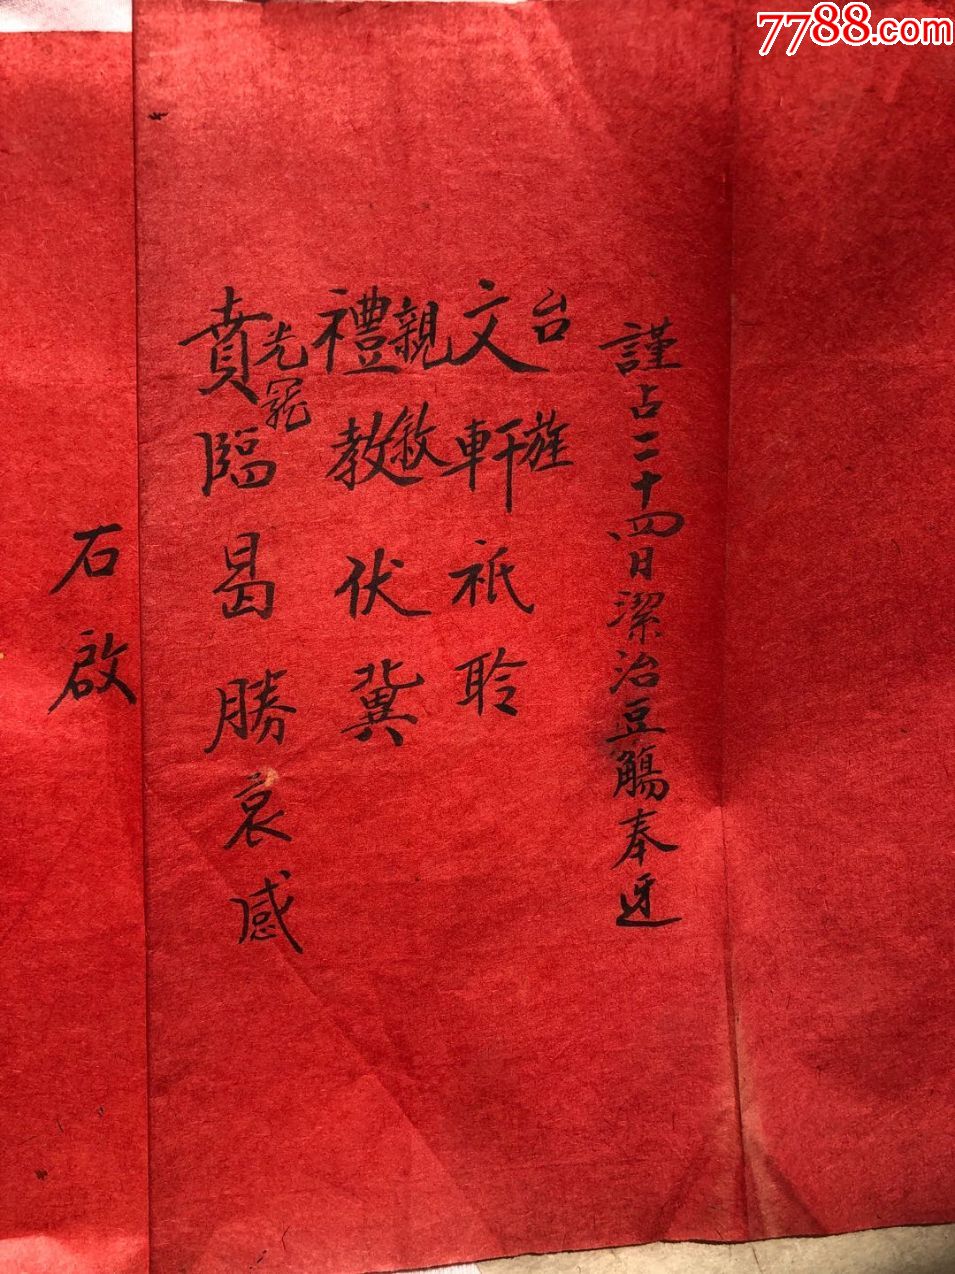 7788.com
謹占二十四日潔治豆觴奉迓
台旌
文軒祇聆
親敘
禮教伏冀
光寵
賁臨曷勝哀感
右啟